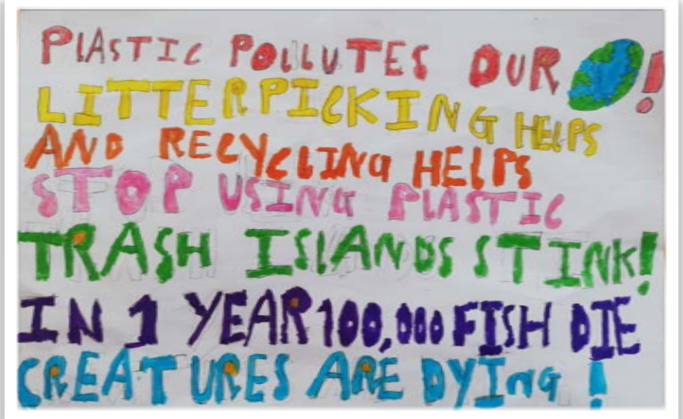 PLASTIC POLLUTES OUR !
LITTERPICKING HELPS
AND RECYCLING HELPS
STOP USING PLASTIC
TRASH ISLANDS STINK!
IN 1 YEAR 100,000 FISH DIE
CREATURES ARE DYING !